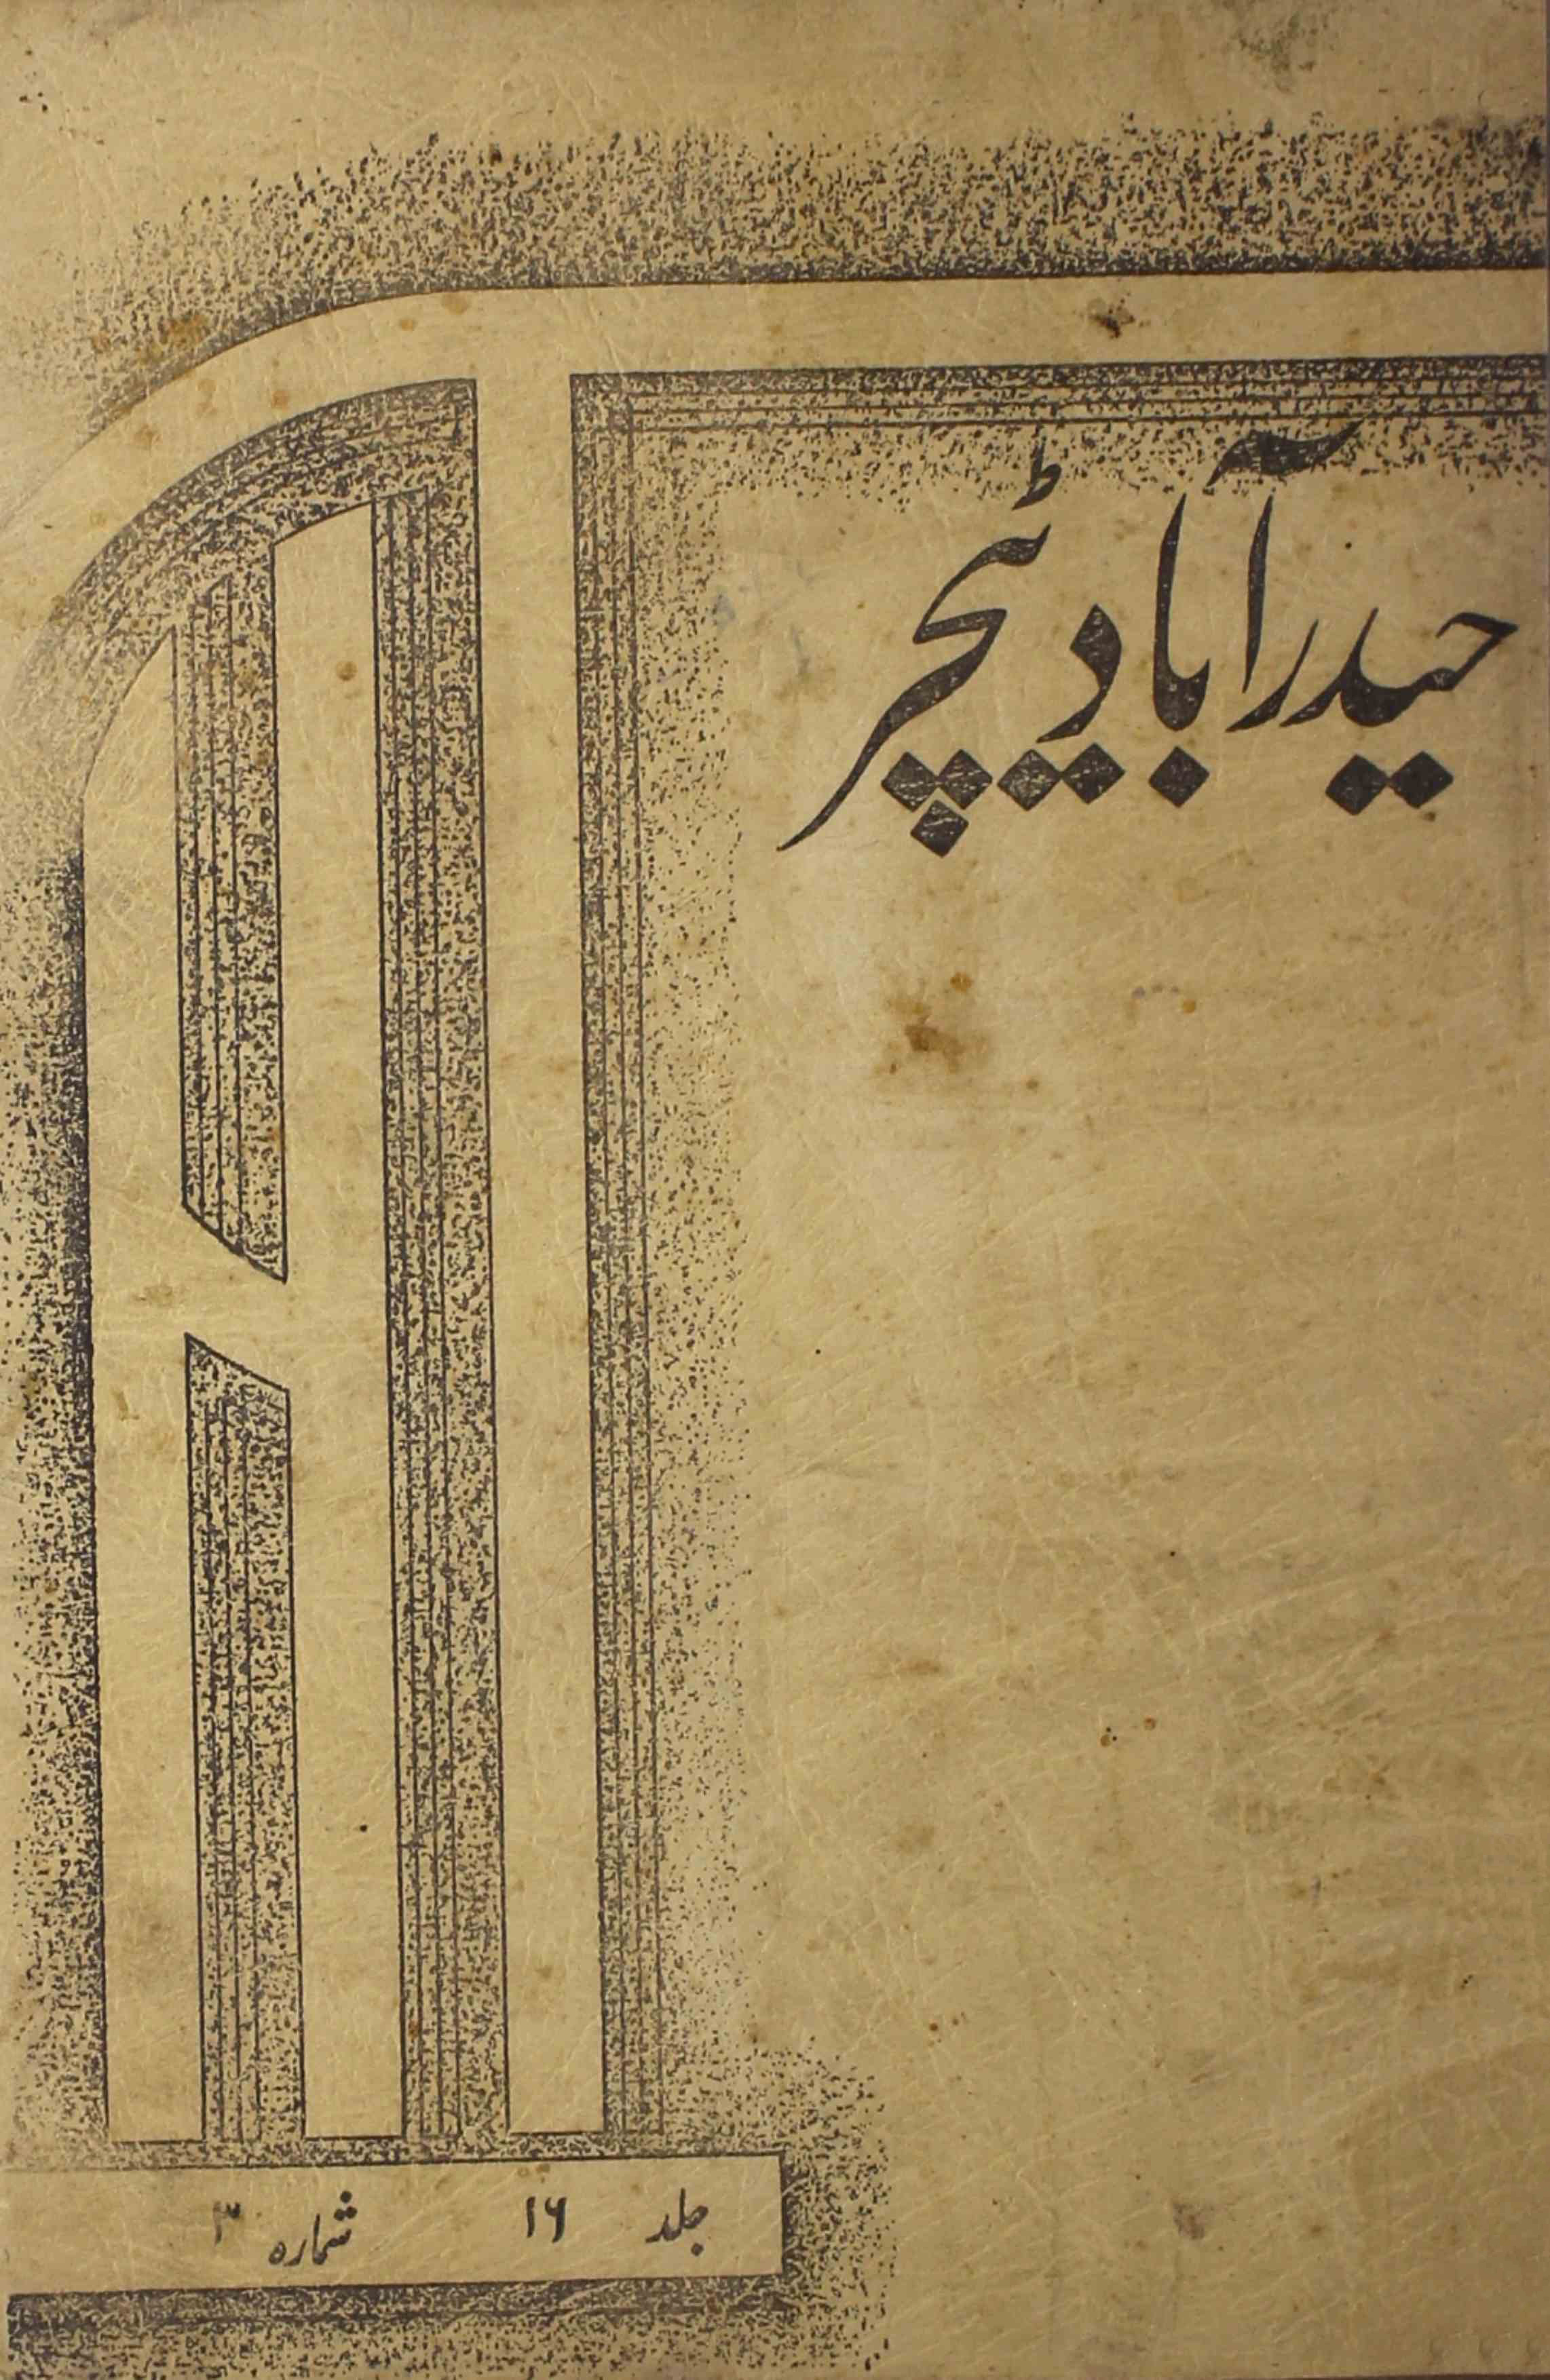 حیدرآباد ٹیچر
جلد ۱۶ شمارہ ۳